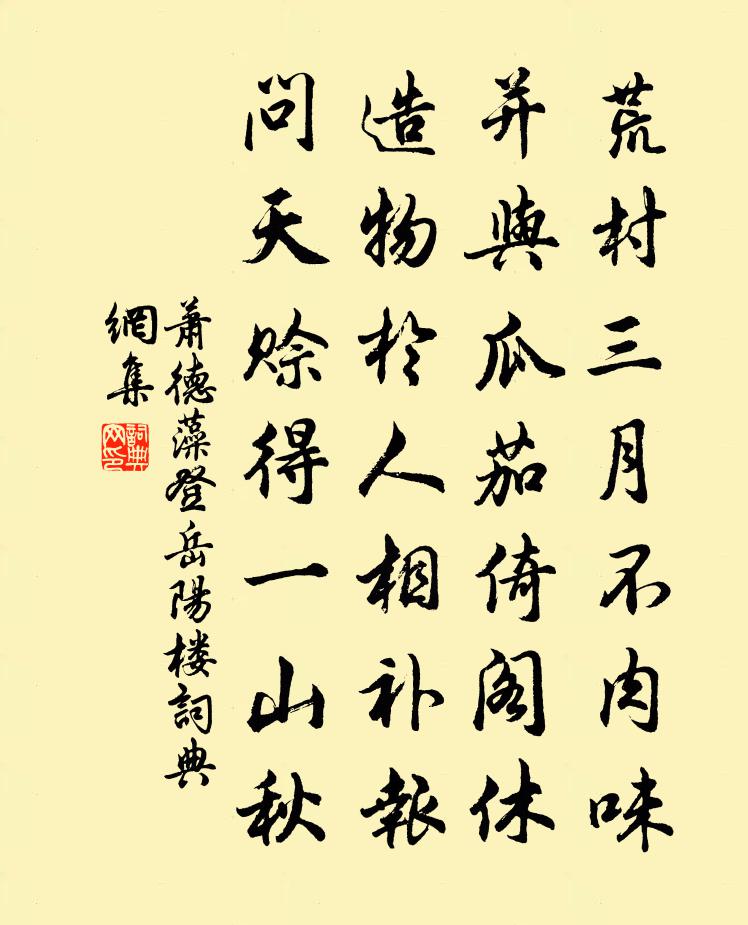 荒村三月不肉味
并與瓜茄倚阁休
造物於人相补報
问天赊得一山秋
萧德藻登岳陽楼詞典
網集
詞典
网印